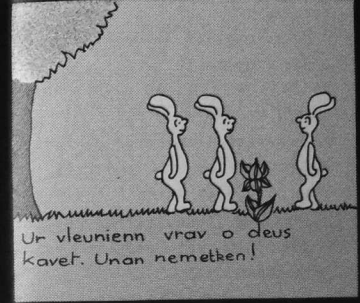 Ur vleunienn vrav o deus
kavet. Unan nemetken!